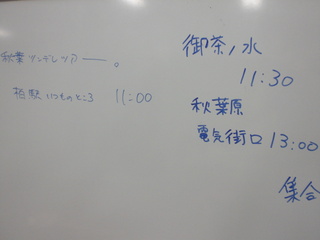 秋葉ワンデレツアー。
柏駅いつものところ 11:00
御茶ノ水
11:30
秋葉原
電気街口 13:00
集合